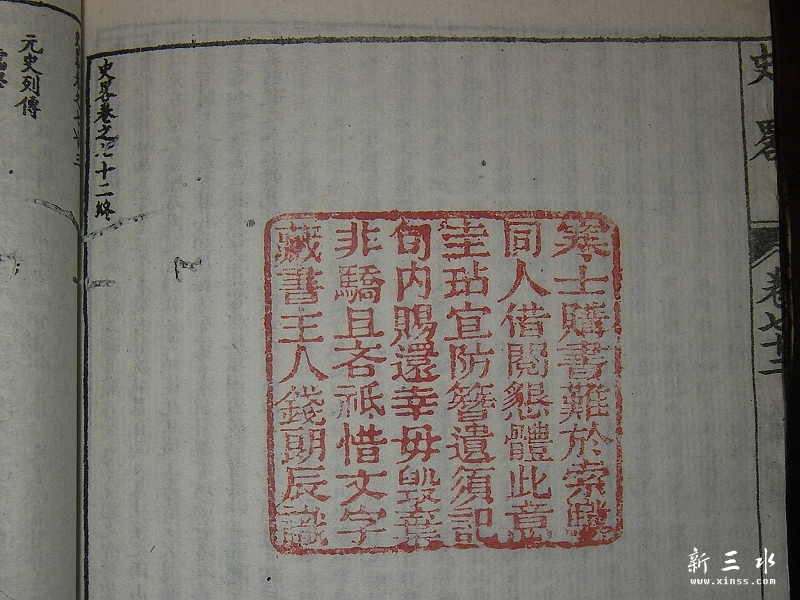 史畧
卷七十二
寒士購書難於索驥
同人借閱懇體此意
圭玷宜防簪遺須記
旬內賜還幸毋毀棄
非驕且吝祇惜文字
藏書主人錢朗辰識
史畧卷之七十二終
史畧卷之七十三
元史列傳
新三水
www.xinss.com